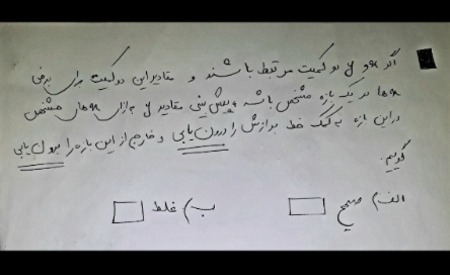 اگر x و y دو کمیت مرتبط باشند و مقادیر این دو کمیت برای برخی
xها در یک بازه مشخص باشد، پیش بینی مقادیر y به ازای xهای مشخص
در این بازه به کمک خط برازش را درون یابی و خارج از این بازه را برون یابی
گوییم.
الف) صحیح ب) غلط